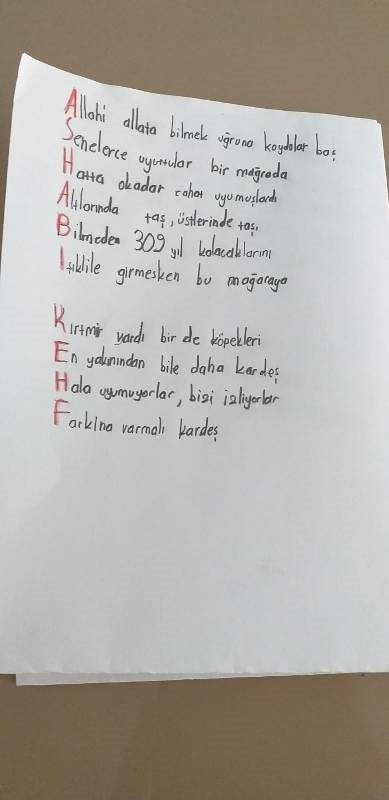 Allahi allata bilmek uğruna koydular baş
Senelerce uyuttular bir mağrada
Hatta okadar rahat uyumuşlardı
Altlarında taş, üstlerinde taş.
Bilmeden 309 yıl kalacaklarını
Işıklile girmesken bu mağaraya
Kırtmir vardı bir de köpekleri
En yakınından bile daha kardeş
Hala uyumuyorlar, bizi izliyorlar
Farkina varmalı kardeş